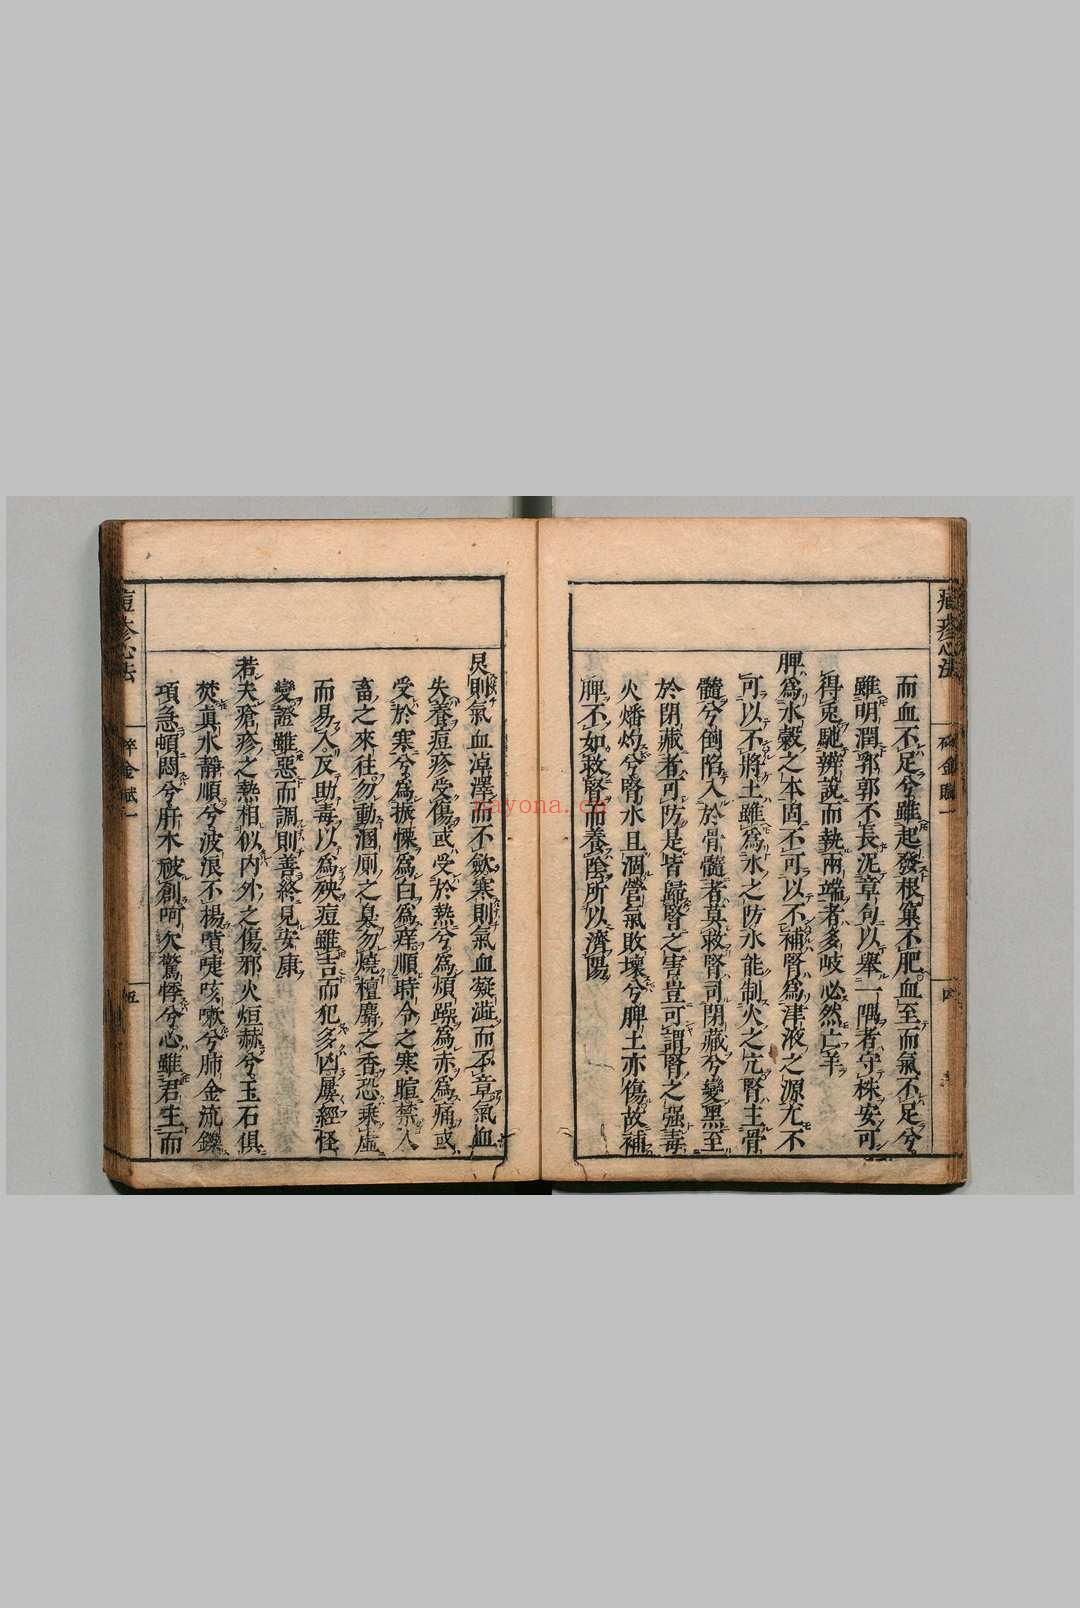 痘疹心法
碎金賦一
四
而血不足兮雖起發根窠不肥血至而氣不足兮
雖明潤郛郭不長泥章句以舉一隅者守株安可
得兎馳辨說而執兩端者多岐必然亡羊
脾為水穀之本固不可以不補腎為津液之源尤不
可以不將土雖為水之防水能制火之亢腎主骨
髓兮倒陷入於骨髓者莫救腎司閉藏兮變黑至
於閉藏者可防是皆歸腎之害豈可謂腎之强毒
火燔灼兮腎水且涸營氣敗壞兮脾土亦傷故補
脾不如救腎而養陰所以濟陽
炅則氣血淖澤而不歛寒則氣血凝澁而不章氣血
失養痘疹受傷或受於熱兮為煩躁為赤為痛或
受於寒兮為振慄為白為痒順時令之寒暄禁人
畜之來往勿動溷厠之臭勿燒檀麝之香恐乘虛
而易入反助毒以為殃痘雖吉而犯多凶屢經怪
變證雖惡而調則善終見安康
若夫瘡疹之熱相似內外之傷邪火烜赫兮玉石俱
焚真水靜順兮波浪不楊嚏咳嗽兮肺金流鑠
項急頓悶兮肝木破創呵欠驚悸兮心雖君主而
痘疹心法
碎金賦一
五
nayona.cn